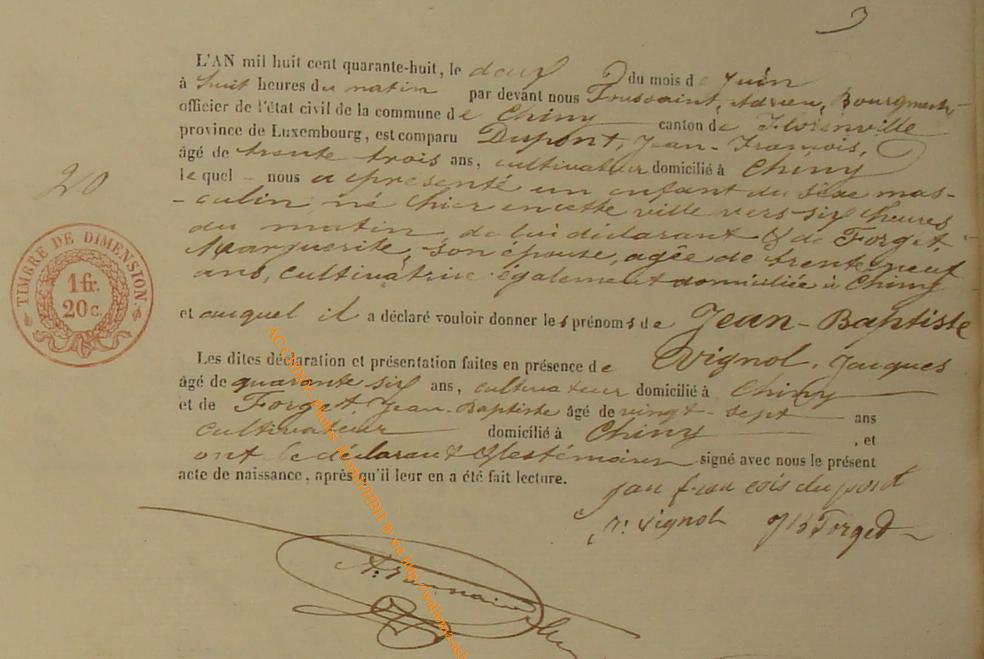 3
L'AN mil huit cent quarante-huit, le deux du mois de Juin
à huit heures du matin par devant nous Toussaint, Adrien, Bourgmestre
officier de l'état civil de la commune de Chiny canton de Florenville
province de Luxembourg, est comparu Dupont, Jean-François,
âgé de trente trois ans, cultivateur domicilié à Chiny
le quel - nous a présenté un enfant du sèxe mas-
-culin, né hier en cette ville vers six heures
du matin, de lui déclarant & de Forget,
Marguerite, son épouse, agée de trente neuf
ans, cultivatrice également domiciliée à Chiny
et auquel il a déclaré vouloir donner les prénoms de Jean-Baptiste
Les dites déclaration et présentation faites en présence de Vignol, Jacques
âgé de quarante six ans, cultivateur domicilié à Chiny
et de Forget, Jean-Baptiste âgé de vingt-sept ans
cultivateur domicilié à Chiny , et
ont le déclarant & les témoins signé avec nous le présent
acte de naissance, après qu'il leur en a été fait lecture.
jan fran cois du pont
J. Vignol JB Forget
A. Toussaint
20
TIMBRE DE DIMENSION
1 fr.
20 c.